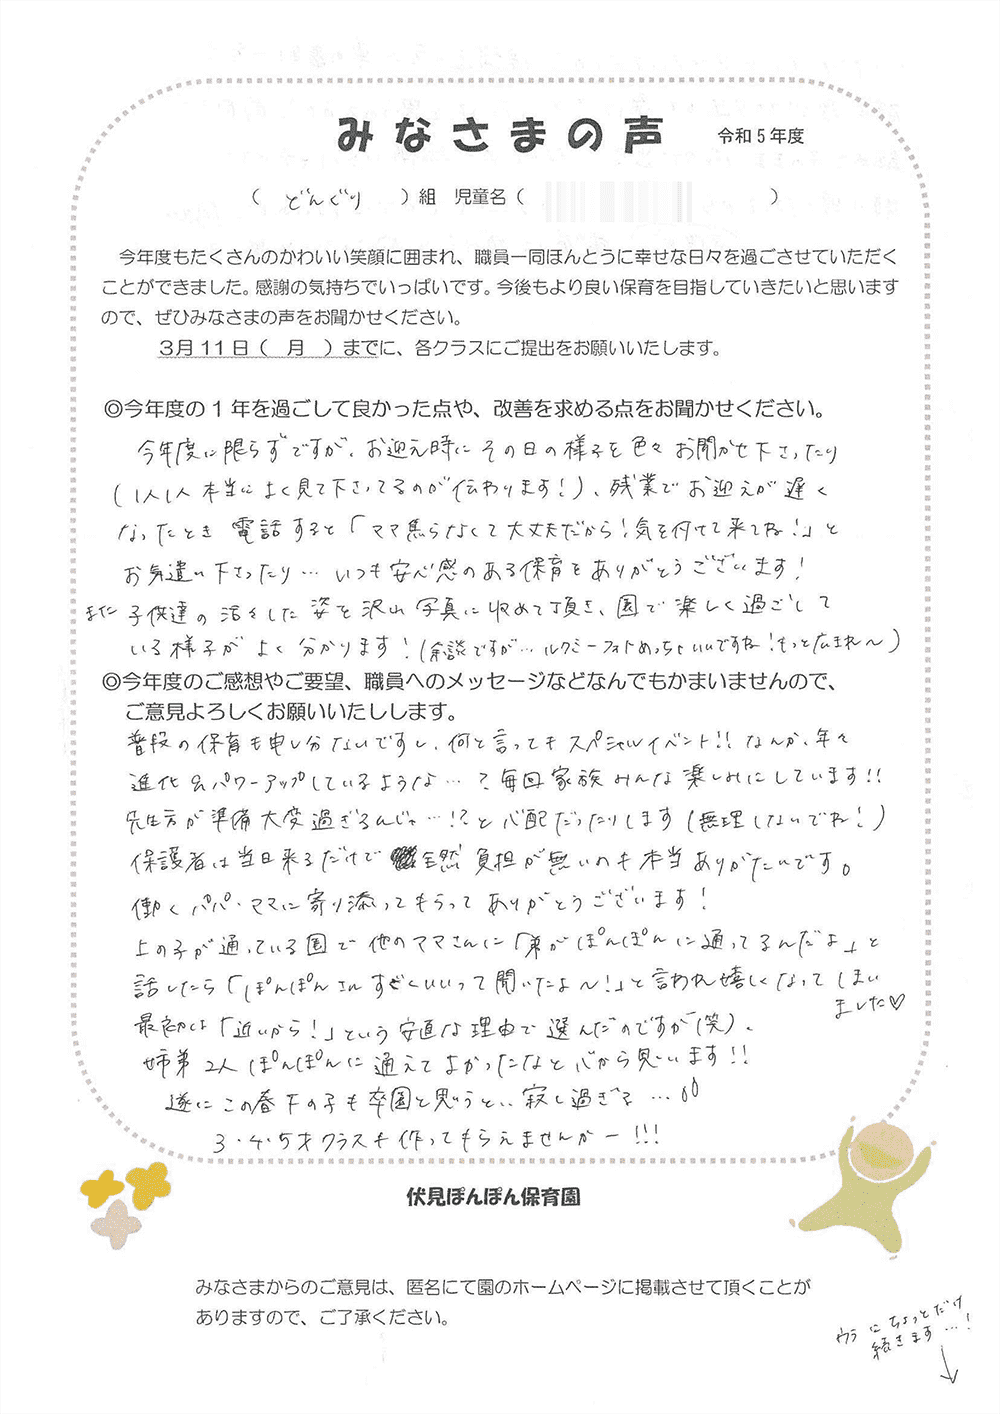 みなさまの声 令和5年度
( どんぐり ) 組 児童名 ( )
今年度もたくさんのかわいい笑顔に囲まれ、職員一同ほんとうに幸せな日々を過ごさせていただく
ことができました。感謝の気持ちでいっぱいです。今後もより良い保育を目指していきたいと思います
ので、ぜひみなさまの声をお聞かせください。
3月11日( 月 )までに、各クラスにご提出をお願いいたします。
◎今年度の1年を過ごして良かった点や、改善を求める点をお聞かせください。
今年度に限らずですが、お迎え時にその日の様子を色々お聞かせ下さったり
(1人1人本当によく見て下さってるのが伝わります!)、残業でお迎えが遅く
なったとき電話すると「ママ焦らなくて大丈夫だから!気を付けて来てね!」と
お気遣い下さったり… いつも安心感のある保育をありがとうございます!
また 子供達の活々した姿を沢山写真に収めて頂き、園で楽しく過ごして
いる様子がよく分かります!(余談ですが…ルクミーフォトめっちゃいいですね!もっと広まれ〜)
◎今年度のご感想やご要望、職員へのメッセージなどなんでもかまいませんので、
ご意見よろしくお願いいたしします。
普段の保育も申し分ないですし、何と言ってもスペシャルイベント!! なんか、年々
進化&パワーアップしているような…?毎回家族みんな楽しみにしています!!
先生方が準備大変過ぎるんじゃ…!?と心配だったりします(無理しないでね!)
保護者は当日来るだけで全然負担が無いのも本当ありがたいです。
働くパパ・ママに寄り添ってもらってありがとうございます!
上の子が通っている園で他のママさんに「弟がぽんぽんに通ってるんだよ」と
話したら「ぽんぽんさんすごくいいって聞いたよ〜!」と言われ嬉しくなってしまい
ました♡
最初は「近いから!」という安直な理由で選んだのですが(笑)、
姉弟2人ぽんぽんに通えてよかったなと心から思います!!
遂にこの春下の子も卒園と思うと、、寂し過ぎる…
3・4・5才クラスも作ってもらえませんかー!!!
伏見ぽんぽん保育園
みなさまからのご意見は、匿名にて園のホームページに掲載させて頂くことが
ありますので、ご了承ください。
ウラにちょっとだけ
続きます…!